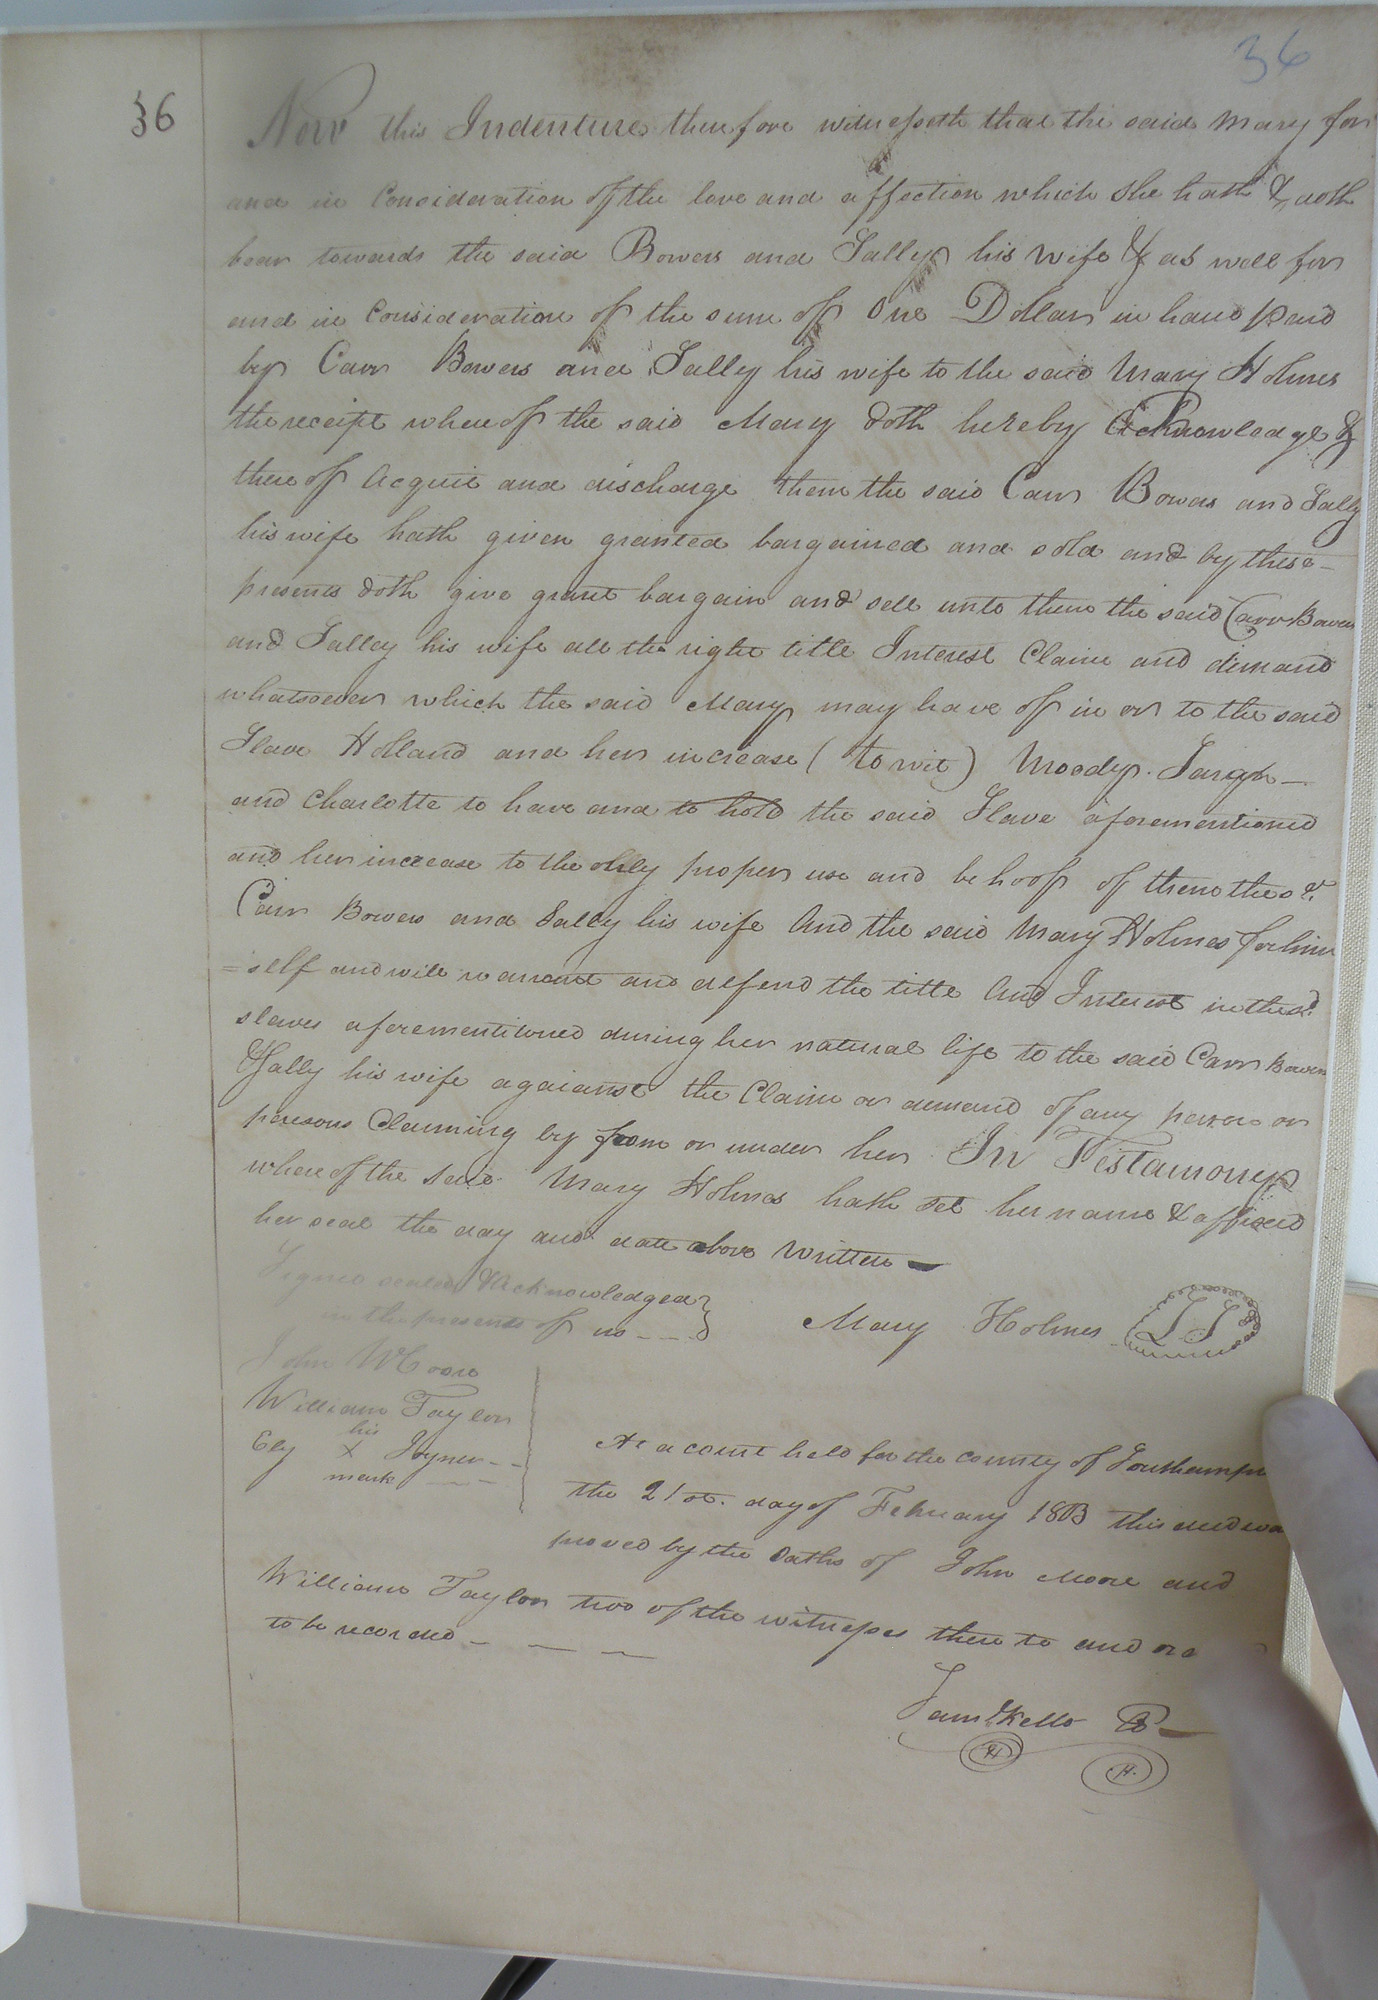 36
36
Now this Indenture therefore witnesseth that the said Mary for
and in Consideration of the love and affection which She hath & doth
bear towards the said Bowers and Sally his Wife & as well for
and in Consideration of the sum of One Dollar in hand paid
by Carr Bowers and Salley his wife to the said Mary Holmes
the receipt whereof the said Mary doth hereby Acknowledge &
there of Acquit and discharge them the said Carr Bowers and Sally
his wife hath given granted bargained and sold and by these
presents doth give grant bargain and sell unto them the said Carr Bowers
and Salley his wife all the right title Interest Claim and demand
whatsoever which the said Mary may have of in or to the said
Slave Holland and her increase (to wit) Moody
and Charlotte to have and to hold the said Slave aforementioned
and her increase to the only proper use and behoof of them the sd.
Carr Bowers and Salley his wife And the said Mary Holmes for him
=self and will warrant and defend the title And Interest in the sd.
slaves aforementioned during her natural life to the said Carr Bowers
& Sally his wife against the Claim or demand of any person or
persons Claiming by from or under her In Testamoney
whereof the said Mary Holmes hath set her name & affixed
her seal the day and date above Written
Signed sealed & Acknowledged
in the presence of us
Mary Holmes LS
John Moore
William Taylor
his
Ely X Joyner
mark
At a court held for the County of Southampn
the 21st. day of February 1803 this deed was
proved by the Oaths of John Moore and
William Taylor two of the witnesses there to and or
to be recorded
Saml Kello